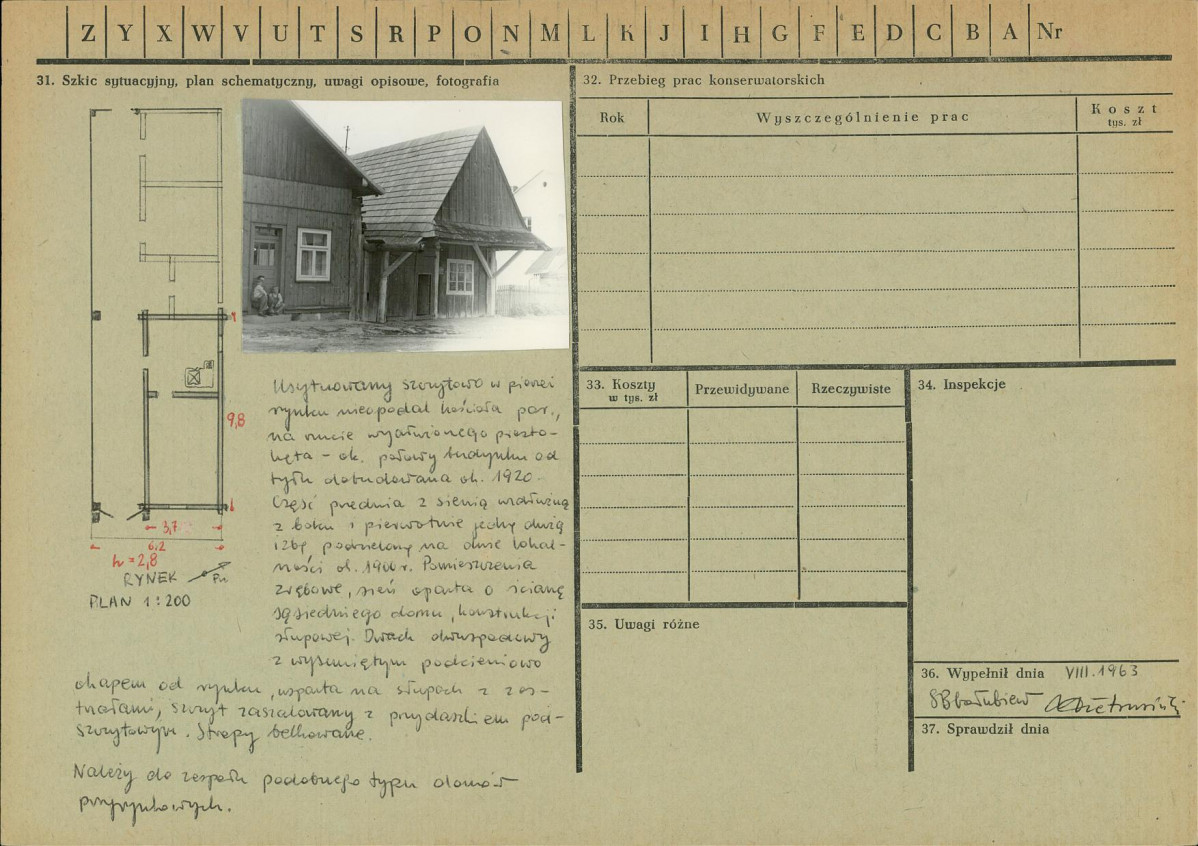 Z Y X W V U T S R P O N M L K J I H G F E D C B A Nr
31. Szkic sytuacyjny, plan schematyczny, uwagi opisowe, fotografia
9,8
3,7
6,2
h = 2,8
RYNEK
Pn.
PLAN 1:200
Usytuowany szczytowo w pierzei
rynku nieopodal kościoła par.,
na rzucie wydłużonego prosto-
kąta - ok. połowy budynku od
tyłu dobudowana ok. 1920.
Część przednia z sienią wzdłużną
z boku i pierwotnie jedną dużą
izbą, podzieloną na dwie lokal-
ności ok. 1900 r. Pomieszczenia
zrębowe, sień oparta o ścianę
sąsiedniego domu, konstrukcji
słupowej. Dach dwuspadowy
z wysuniętym podcieniowo
okapem od rynku, wsparta na słupach z zas-
trzałami, szczyt zaszalowany z przydaszkiem pod-
szczytowym. Stropy belkowane.
Należy do zespołu podobnego typu domów
przyrynkowych.
32. Przebieg prac konserwatorskich
Rok
Wyszczególnienie prac
Koszt
tys. zł
33. Koszty
w tys. zł
Przewidywane
Rzeczywiste
34. Inspekcje
35. Uwagi różne
36. Wypełnił dnia VIII.1963
37. Sprawdził dnia